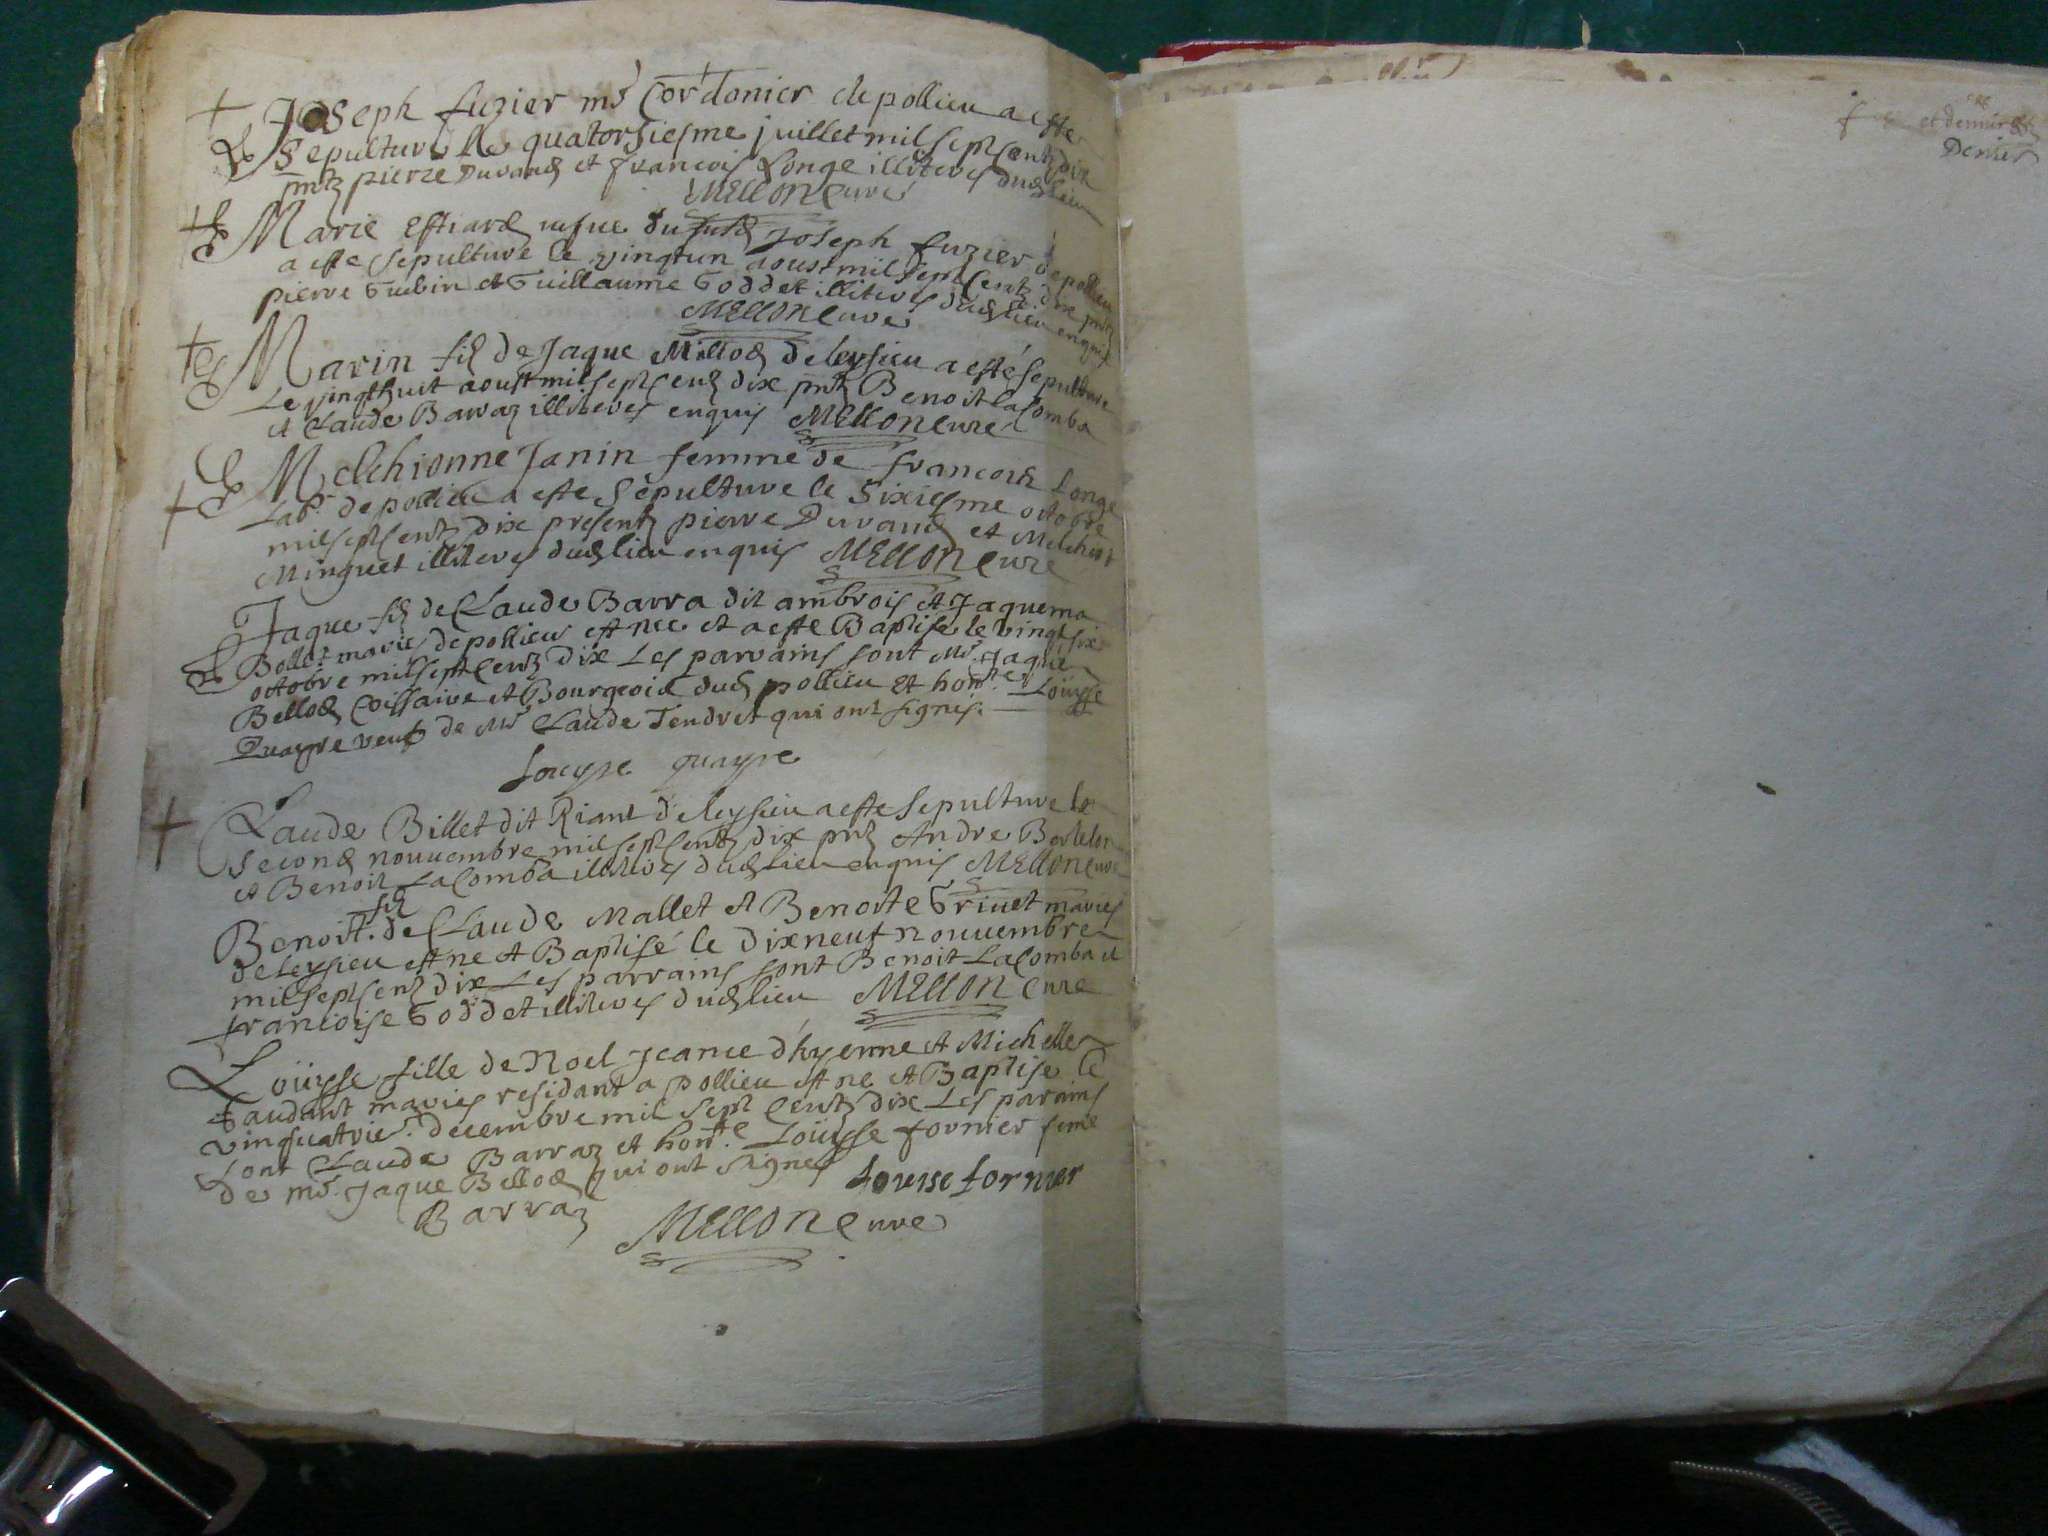 Joseph fuzier m.e Cordonier de pollieu a esté
sepulturé le quatorsiesme juillet mil sept centz dix
pntz pierre Durand et francois Longe illiteres dud lieu
MELLON Curé
Marie Estiard vefve du fud Joseph fuzier de pollieu
a este sepulture le vingtun aoust mil sept centz dix pntz
pierre Gubin et Guillaume Goddet illiteres dud lieu enquis
MELLON Cure
Marin filz de Jaque Millod de leysieu a esté sepulture
Le vingthuit aoust mil sept centz dix pntz Benoit LaComba
et Claude Barraz illiteres enquis MELLON Curé
Melchionne Janin femme de francois Longe
Labr. de pollieu a este sepulture le sixiesme octobre
mil sept centz dix presentz pierre Durand et Melchiot
Minguet illiteres dud lieu enquis MELLON Cure
Jaque filz de Claude Barra dit ambrois et Jaquema
Bollet maries de pollieu est nee et a este Baptise le vingt six
octobre mil sept centz dix Les parrains sont Mr. Jaque
Bellod Coissaire et Bourgeois dud pollieu et hon.te Loüysse
Quayre veuf de Mr Claude Tendret qui ont signes.
Louyse quayre
Claude Billet dit Riant de leysieu a este sepulture le
second nouvembre mil sept centz dix pntz Andre Bertelon
et Benoit LaComba illiteres dud lieu enquis MELLON Cure
filz
Benoit. de Claude Mallet et Benoite Grivet maries
de leysieu est ne et Baptisé le dixneuf nouvembre
mil sept centz dix Les parrains sont Benoit LaComba et
francoise Goddet illiteres dud lieu MELLON Cure
Loüysse fille de Noel Jeance d'hyenne et Michelle
Gaudant maries residant a pollieu est ne et Baptise le
vingquatrie. decembre mil sept centz dix Les parains
sont Claude Barraz et hon.te Loüysse fornier feme
de mr. Jaque Bellod qui ont signes Louise fornier
Barraz
MELLON Cure
et demis
Denier